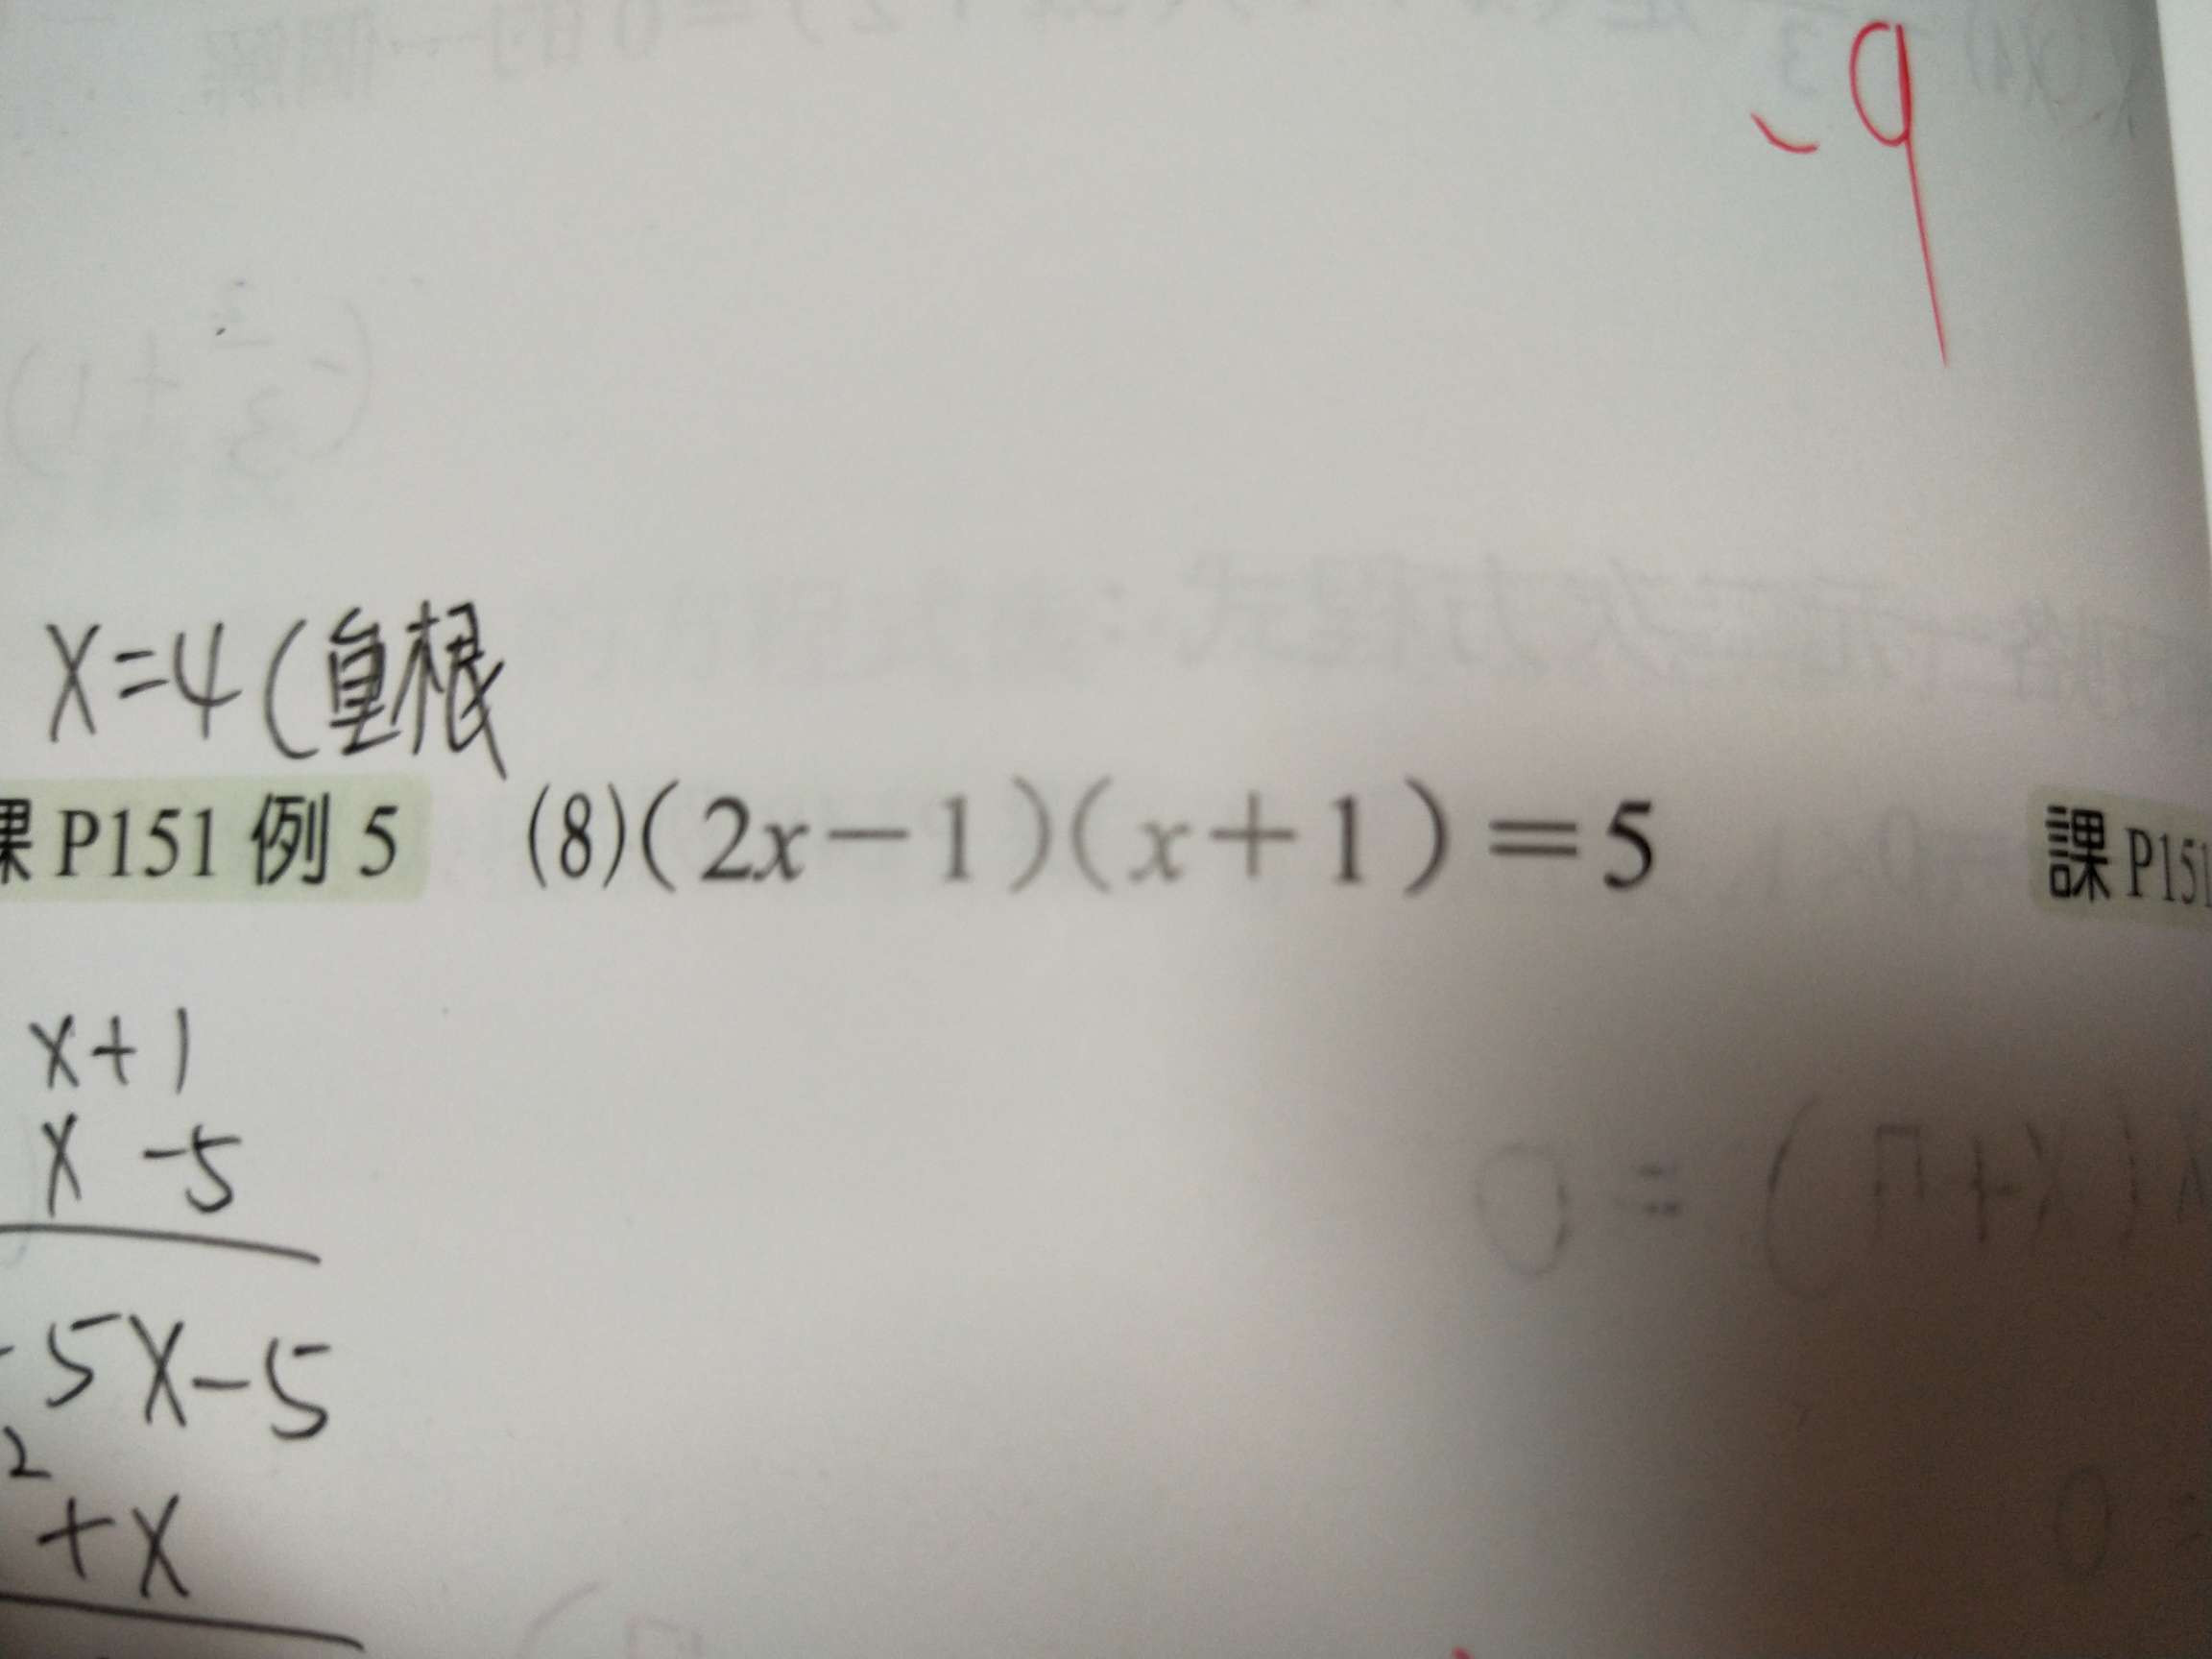 -9
x=4(重根
課P151 例 5 (8)(2x-1)(x+1)=5 課P151
x+1
x -5
-5x-5
2
+x